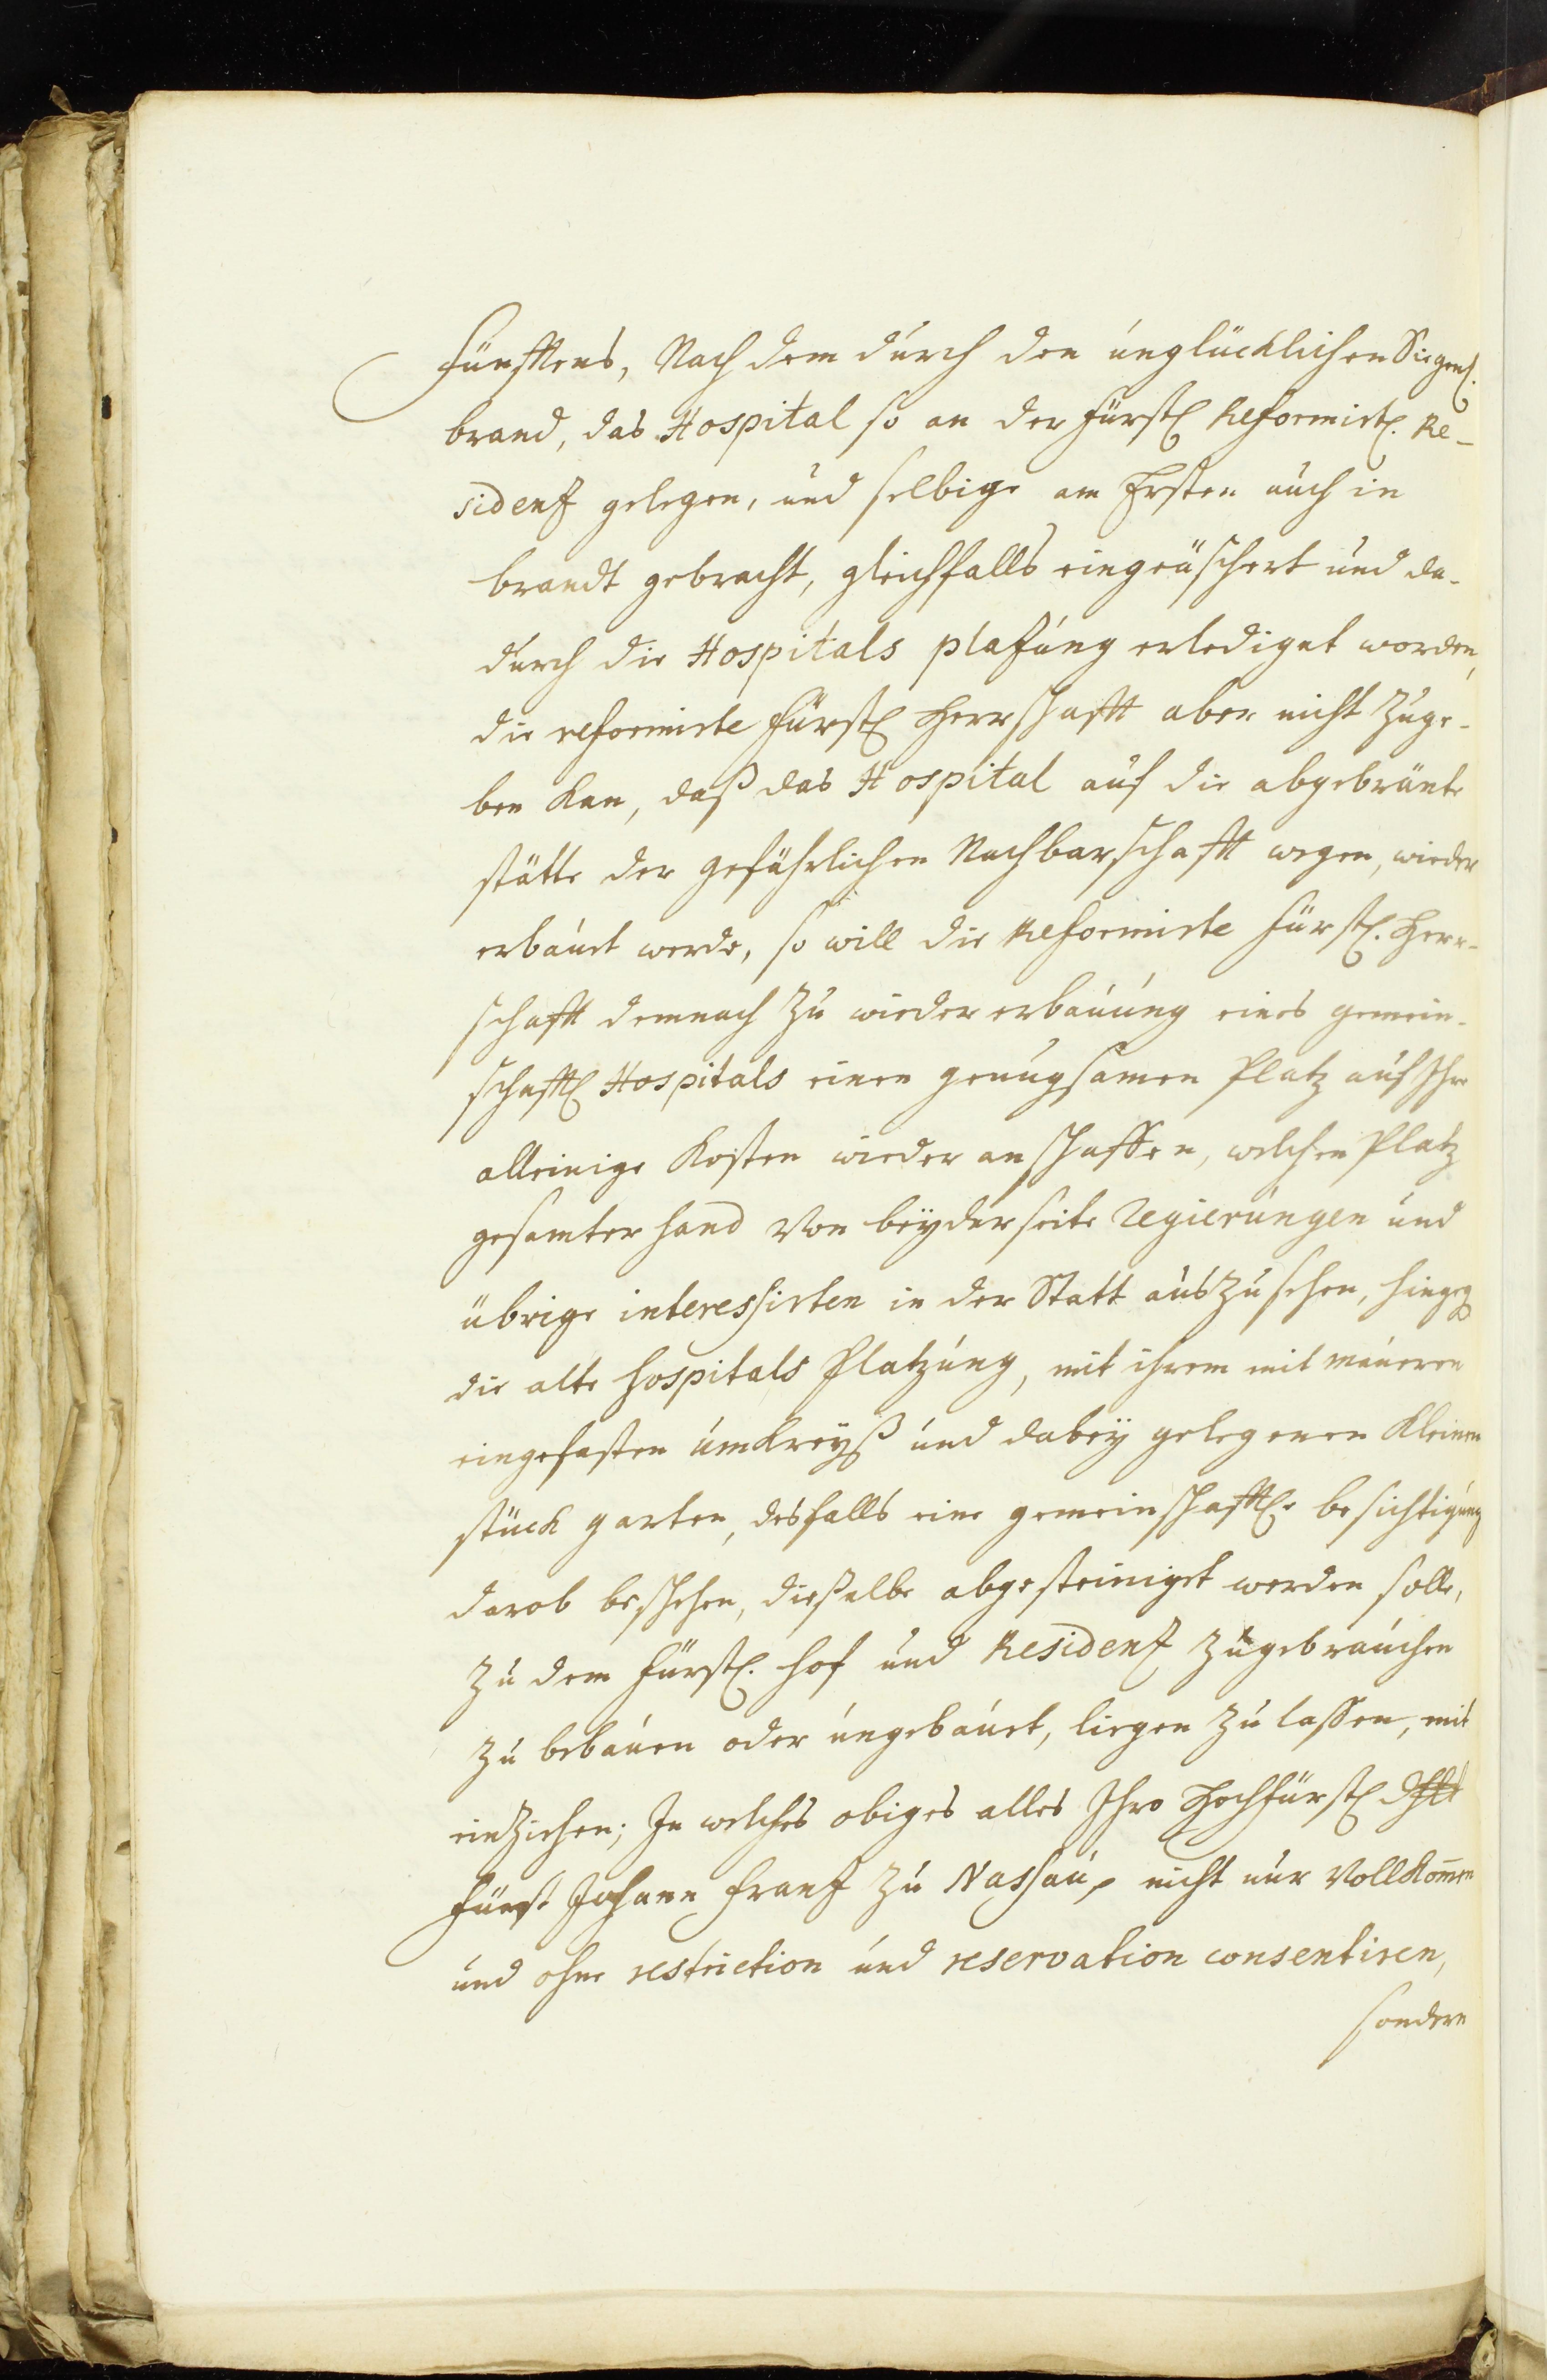 Fünfftens, Nach dem durch den unglücklichen Siegens.
brand, das Hospital so an der Fürstl. Reformirt. Re-
sidentz gelegen, und selbige am Ersten auch in
brandt gebracht, gleichfalls eingeäschert und da-
durch die Hospitals platzung erlediget worden,
die reformirte Fürstl. Herrschafft aber nicht zuge-
ben kan, daß das Hospital auf die abgebränte
stätte der gefährlichen Nachbarschafft wegen, wieder
erbauet werde, so will die Reformirte Fürstl. Herr-
schafft demnach zu wieder erbauung eines gemein-
schafftl. Hospitals einen genugsamen Platz auf Ihre
alleinige Kosten wieder anschaffen, welchen Platz
gesamter hand von beyderseits Regierungen und
übrige interessirten in der Statt auszusehen, hingeg.
die alte hospitals Platzung, mit ihrem mit mauren
eingefasten umkreyß und dabey gelegenen kleinen
stück garten, desfalls eine gemeinschafftl. besichtigung
darob beschehen, dieselbe abgesteiniget werden solle,
zu dem Fürstl. hof und Residentz zugebrauchen
zu bebauen oder ungebauet, liegen zu lassen, mit
einziehen; In welches obiges alles Ihro Hochfürstl. Dhlt
Fürst Johann Frantz zu Nassau, nicht nur Vollkom̄en
und ohne restriction und reservation consentiren,
sondern